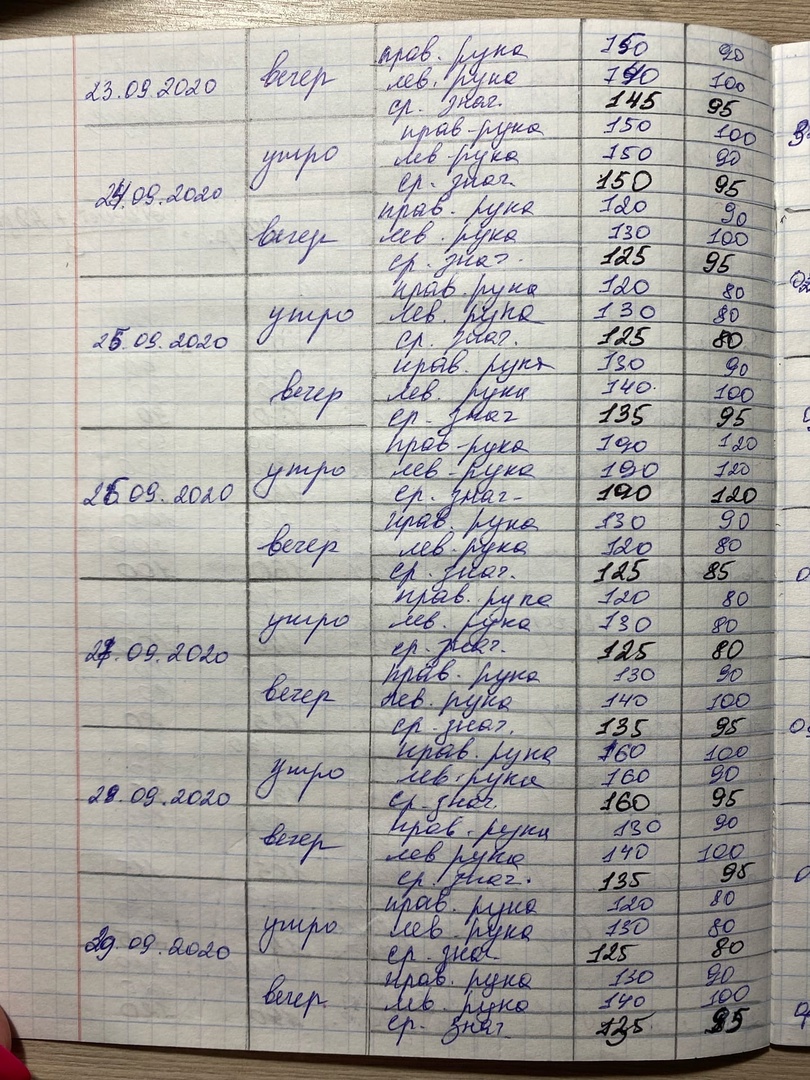 23.09.2020 вечер прав. рука 150 90
лев. рука 140 100
ср. знач. 145 95
24.09.2020 утро прав. рука 150 100
лев. рука 150 90
ср. знач. 150 95
вечер прав. рука 120 90
лев. рука 130 100
ср. знач. 125 95
25.09.2020 утро прав. рука 120 80
лев. рука 130 80
ср. знач. 125 80
вечер прав. рука 130 90
лев. рука 140 100
ср. знач 135 95
26.09.2020 утро прав. рука 190 120
лев. рука 190 120
ср. знач. 190 120
вечер прав. рука 130 90
лев. рука 120 80
ср. знач. 125 85
27.09.2020 утро прав. рука 120 80
лев. рука 130 80
ср. знач. 125 80
вечер прав. рука 130 90
лев. рука 140 100
ср. знач. 135 95
28.09.2020 утро прав. рука 160 100
лев. рука 160 90
ср. знач. 160 95
вечер прав. рука 130 90
лев рука 140 100
ср. знач. 135 95
29.09.2020 утро прав. рука 120 80
лев. рука 130 80
ср. знач. 125 80
вечер прав. рука 130 90
лев. рука 140 100
ср. знач. 135 95